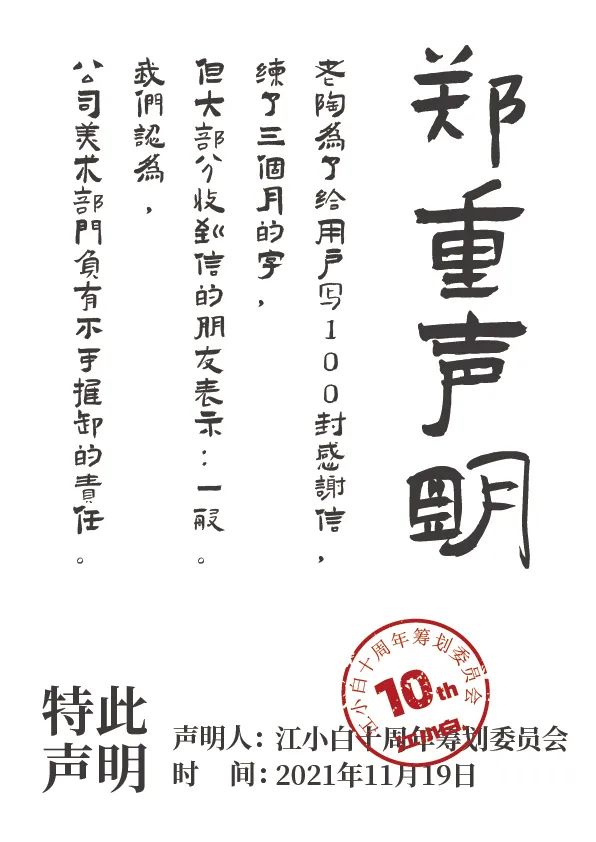 郑重声明
老陶為了给用户写100封感謝信，
練了三個月的字，
但大部分收到信的朋友表示：一般。
我們認為，
公司美术部門負有不可推卸的責任。
特此
声明
声明人：江小白十周年筹划委员会
时 间：2021年11月19日
江小白十周年筹划委员会
10th
江小白